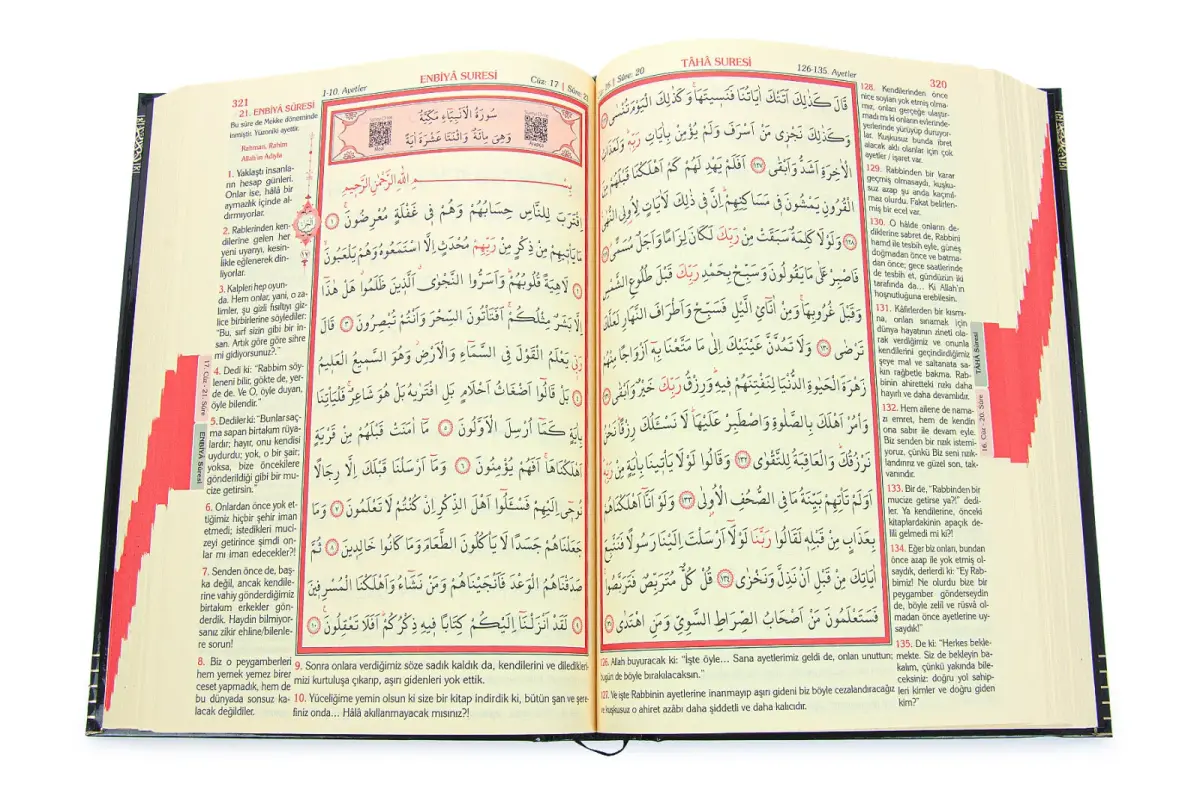 TÂHÂ SURESİ
126-135. Ayetler
320
Sûre: 20
قَالَ كَذٰلِكَ اَتَتْكَ اٰيَاتُنَا فَنَسٖيتَهَاۚ وَكَذٰلِكَ الْيَوْمَ تُنْسٰى
وَكَذٰلِكَ نَجْزٖى مَنْ اَسْرَفَ وَلَمْ يُؤْمِنْ بِاٰيَاتِ رَبِّهٖؕ وَلَعَذَابُ
الْاٰخِرَةِ اَشَدُّ وَاَبْقٰى ١٢٧ اَفَلَمْ يَهْدِ لَهُمْ كَمْ اَهْلَكْنَا قَبْلَهُمْ مِنَ
الْقُرُونِ يَمْشُونَ فٖى مَسَاكِنِهِمْؕ اِنَّ فٖى ذٰلِكَ لَاٰيَاتٍ لِاُولِى النُّهٰى
١٢٨ وَلَوْلَا كَلِمَةٌ سَبَقَتْ مِنْ رَبِّكَ لَكَانَ لِزَامًا وَاَجَلٌ مُسَمًّى
فَاصْبِرْ عَلٰى مَا يَقُولُونَ وَسَبِّحْ بِحَمْدِ رَبِّكَ قَبْلَ طُلُوعِ الشَّمْسِ
وَقَبْلَ غُرُوبِهَاۚ وَمِنْ اٰنَائِ الَّيْلِ فَسَبِّحْ وَاَطْرَافَ النَّهَارِ لَعَلَّكَ
تَرْضٰى ١٣٠ وَلَا تَمُدَّنَّ عَيْنَيْكَ اِلٰى مَا مَتَّعْنَا بِهٖ اَزْوَاجًا مِنْهُمْ
زَهْرَةَ الْحَيٰوةِ الدُّنْيَا لِنَفْتِنَهُمْ فٖيهِؕ وَرِزْقُ رَبِّكَ خَيْرٌ وَاَبْقٰى
وَأْمُرْ اَهْلَكَ بِالصَّلٰوةِ وَاصْطَبِرْ عَلَيْهَاؕ لَا نَسْـَٔلُكَ رِزْقًاؕ نَحْنُ
نَرْزُقُكَؕ وَالْعَاقِبَةُ لِلتَّقْوٰى ١٣٢ وَقَالُوا لَوْلَا يَأْتٖينَا بِاٰيَةٍ مِنْ رَبِّهٖ
اَوَلَمْ تَأْتِهِمْ بَيِّنَةُ مَا فِى الصُّحُفِ الْاُولٰى ١٣٣ وَلَوْ اَنَّا اَهْلَكْنَاهُمْ
بِعَذَابٍ مِنْ قَبْلِهٖ لَقَالُوا رَبَّنَا لَوْلَا اَرْسَلْتَ اِلَيْنَا رَسُولًا فَنَتَّبِعَ
اٰيَاتِكَ مِنْ قَبْلِ اَنْ نَذِلَّ وَنَخْزٰى ١٣٤ قُلْ كُلٌّ مُتَرَبِّصٌ فَتَرَبَّصُوا
فَسَتَعْلَمُونَ مَنْ اَصْحَابُ الصِّرَاطِ السَّوِىِّ وَمَنِ اهْتَدٰى
126. Allah buyuracak ki: "İşte öyle... Sana ayetlerimiz geldi de, onları unuttun;
bugün de böyle bırakılacaksın."
127. Ve işte Rabbinin ayetlerine inanmayıp aşırı gideni biz böyle cezalandıracağız
ve kuşkusuz o ahiret azâbı daha şiddetli ve daha kalıcıdır.
128. Kendilerinden önce
nice soyları yok etmiş olma-
mız, onları gerçeğe ulaştır-
madı mı ki onların evlerinde-
yerlerinde yürüyüp duruyor-
lar. Kuşkusuz bunda ibret
alacak aklı olanlar için çok
ayetler / işaret var.
129. Rabbinden bir karar
geçmiş olmasaydı, kuşku-
suz azap şu anda kaçınıl-
maz olurdu. Fakat belirlen-
miş bir ecel var.
130. O hâlde onların de-
diklerine sabret de, Rabbini
hamd ile tesbih eyle, güneş
doğmadan önce ve batma-
dan önce; gece saatlerinde
de tesbih et, gündüzün iki
tarafında da... Ki Allah'ın
hoşnutluğuna erebilesin.
131. Kâfirlerden bir kısmı-
na, onları sınamak için
dünya hayatının zîneti ola-
rak verdiğimiz ve onunla
kendilerini geçindirdiğimiz
şeye mal ve saltanata sa-
kın rağbetle bakma. Rab-
binin ahiretteki rızkı daha
hayırlı ve daha devamlıdır.
132. Hem ailene de nama-
zı emret, hem de kendin
ona sabır ile devam eyle.
Biz senden bir rızık istemi-
yoruz, çünkü Biz seni rızık-
landırırız ve güzel son, tak-
vanındır.
133. Bir de, "Rabbinden bir
mucize getirse ya?!" dedi-
ler. Ya kendilerine, önceki
kitaplardakinin apaçık de-
lili gelmedi mi ki?!
134. Eğer biz onları, bundan
önce azap ile yok etmiş ol-
saydık, derlerdi ki: "Ey Rab-
bimiz! Ne olurdu bize bir
peygamber gönderseydin
de, böyle zelil ve rüsvâ ol-
madan önce ayetlerine uy-
saydık!"
135. De ki: "Herkes bekle-
mekte. Siz de bekleyin ba-
kalım, çünkü yakında bile-
ceksiniz: doğru yol sahip-
leri kimler ve doğru giden
kim?"
TÂHÂ Sûresi
16. Cüz - 20. Sûre
321
1-10. Ayetler
ENBİYÂ SURESİ
Cüz: 17 | Sûre: 21
سُورَةُ الْاَنْبِيَاءِ مَكِّيَّةٌ
وَهِىَ مِائَةٌ وَاثْنَتَا عَشْرَةَ اٰيَةً
Meal
Arapça
بِسْمِ اللّٰهِ الرَّحْمٰنِ الرَّحٖيمِ
اِقْتَرَبَ لِلنَّاسِ حِسَابُهُمْ وَهُمْ فٖى غَفْلَةٍ مُعْرِضُونَۚ ١
مَا يَأْتٖيهِمْ مِنْ ذِكْرٍ مِنْ رَبِّهِمْ مُحْدَثٍ اِلَّا اسْتَمَعُوهُ وَهُمْ يَلْعَبُونَۙ
٢ لَاهِيَةً قُلُوبُهُمْؕ وَاَسَرُّوا النَّجْوٰىۗ الَّذٖينَ ظَلَمُواۗ هَلْ هٰذَا
اِلَّا بَشَرٌ مِثْلُكُمْۚ اَفَتَأْتُونَ السِّحْرَ وَاَنْتُمْ تُبْصِرُونَ ٣ قَالَ
رَبّٖى يَعْلَمُ الْقَوْلَ فِى السَّمَاءِ وَالْاَرْضِؗ وَهُوَ السَّمٖيعُ الْعَلٖيمُ
٤ بَلْ قَالُوا اَضْغَاثُ اَحْلَامٍ بَلِ افْتَرٰيهُ بَلْ هُوَ شَاعِرٌۚ فَلْيَأْتِنَا
بِاٰيَةٍ كَمَا اُرْسِلَ الْاَوَّلُونَ ٥ مَا اٰمَنَتْ قَبْلَهُمْ مِنْ قَرْيَةٍ
اَهْلَكْنَاهَاۚ اَفَهُمْ يُؤْمِنُونَ ٦ وَمَا اَرْسَلْنَا قَبْلَكَ اِلَّا رِجَالًا
نُوحٖى اِلَيْهِمْ فَسْـَٔلُوا اَهْلَ الذِّكْرِ اِنْ كُنْتُمْ لَا تَعْلَمُونَ ٧ وَمَا
جَعَلْنَاهُمْ جَسَدًا لَا يَأْكُلُونَ الطَّعَامَ وَمَا كَانُوا خَالِدٖينَ ٨ ثُمَّ
صَدَقْنَاهُمُ الْوَعْدَ فَاَنْجَيْنَاهُمْ وَمَنْ نَشَاءُ وَاَهْلَكْنَا الْمُسْرِفٖينَ
٩ لَقَدْ اَنْزَلْنَا اِلَيْكُمْ كِتَابًا فٖيهِ ذِكْرُكُمْؕ اَفَلَا تَعْقِلُونَ ١٠
21. ENBİYÂ SÛRESİ
Bu sûre de Mekke döneminde
inmiştir. Yüzoniki ayettir.
Rahman, Rahim
Allah'ın Adıyla
1. Yaklaştı insanla-
rın hesap günleri.
Onlar ise, hâlâ bir
aymazlık içinde al-
dırmıyorlar.
2. Rablerinden ken-
dilerine gelen her
yeni uyarıyı, kesin-
likle eğlenerek din-
liyorlar.
3. Kalpleri hep oyun-
da. Hem onlar, yani, o za-
limler, şu gizli fısıltıyı giz-
lice birbirlerine söylediler:
"Bu, sırf sizin gibi bir in-
san. Artık göre göre sihre
mi gidiyorsunuz?."
4. Dedi ki: "Rabbim söy-
leneni bilir, gökte de, yer-
de de. Ve O, öyle duyan,
öyle bilendir."
5. Dediler ki: "Bunlar saç-
ma sapan birtakım rüya-
lardır; hayır, onu kendisi
uydurdu; yok, o bir şair;
yoksa, bize öncekilere
gönderildiği gibi bir mu-
cize getirsin."
6. Onlardan önce yok et-
tiğimiz hiçbir şehir iman
etmedi; istedikleri muci-
zeyi getirince şimdi on-
lar mı iman edecekler?!
7. Senden önce de, baş-
ka değil, ancak kendile-
rine vahiy gönderdiğimiz
birtakım erkekler gön-
derdik. Haydin bilmiyor-
sanız zikir ehline/bilenle-
re sorun!
8. Biz o peygamberleri
hem yemek yemez birer
ceset yapmadık, hem de
bu dünyada sonsuz ka-
lacak değildiler.
9. Sonra onlara verdiğimiz söze sadık kaldık da, kendilerini ve diledikleri-
mizi kurtuluşa çıkarıp, aşırı gidenleri yok ettik.
10. Yüceliğime yemin olsun ki size bir kitap indirdik ki, bütün şan ve şere-
finiz onda... Hâlâ akıllanmayacak mısınız?!
17. Cüz - 21. Sûre
ENBİYÂ Sûresi